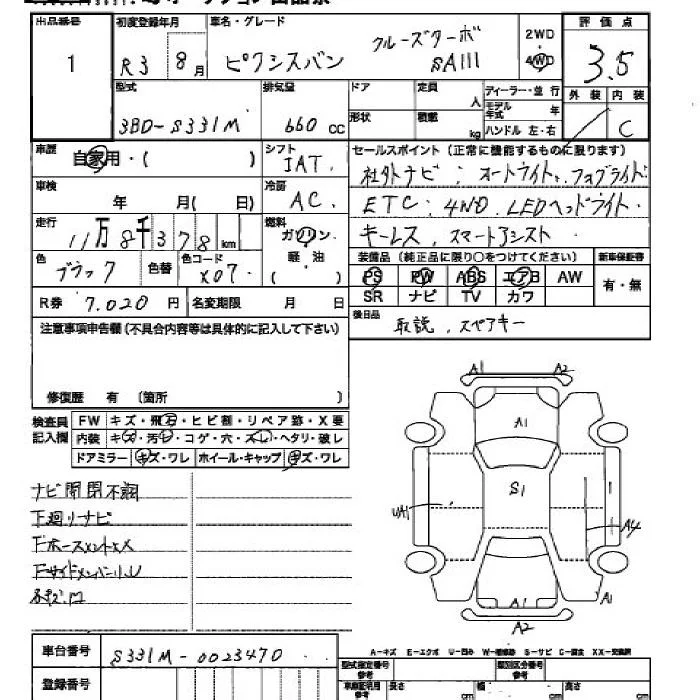 出品番号 初度登録年月 車名・グレード 評価点
1 R3 8月 ピクシスバン クルーズターボ SAIII 2WD・4WD 3.5
型式 排気量 ドア 定員 人 ディーラー・並行 外装 内装
3BD-S331M 660cc 形状 積載 kg モデル年式 年 ハンドル 左・右 / C
車歴 自家用・( ) シフト IAT. セールスポイント(正常に機能するものに限ります)
社外ナビ オートライト フォグライト
車検 年 月( 日) 冷房 AC. ETC 4WD LEDヘッドライト
走行 11万8千378km 燃料 ガソリン・軽・油 ( ) キーレス スマートアシスト
色 ブラック 色替 色コード X07. 装備品(純正品に限り○をつけてください) 新車保証書
PS PW ABS エアB AW 有・無
SR ナビ TV カワ
R券 7.020円 名変期限 月 日 後日品 取説、スペアキー
注意事項申告欄(不具合内容等は具体的に記入して下さい)
修復歴 有 (箇所 )
検査員記入欄 FW キズ・飛石・ヒビ割・リペア跡・X要
内装 キズ・汚レ・コゲ・穴・スレ・ヘタリ・破レ
ドアミラー キズ・ワレ ホイール・キャップ キズ・ワレ
A1 A2
A1
S1
UA1 A4
A1 A1
A2
ナビ開閉不調
下廻りサビ
A-キズ E-エクボ U-凹み W-補修跡 S-サビ C-腐食 XX-交換済
車台番号 S331M-0023470 型式指定番号 参考 類別区分番号 参考
登録番号 車庫証明用 参考 長さ cm 幅 cm 高さ cm